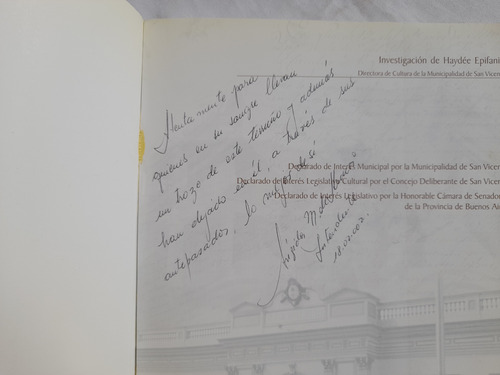 Investigación de Haydée Epifani
Directora de Cultura de la Municipalidad de San Vicen
Atentamente para
quienes en su sangre llevan
un trozo de este terruño y además
han dejado en él a través de sus
antepasados, lo mejor de sí
Intendente
18.07.002.
Declarado de Interés Municipal por la Municipalidad de San Vicen
Declarado de Interés Legislativo Cultural por el Concejo Deliberante de San Vicen
Declarado de Interés Legislativo por la Honorable Cámara de Senador
de la Provincia de Buenos Air